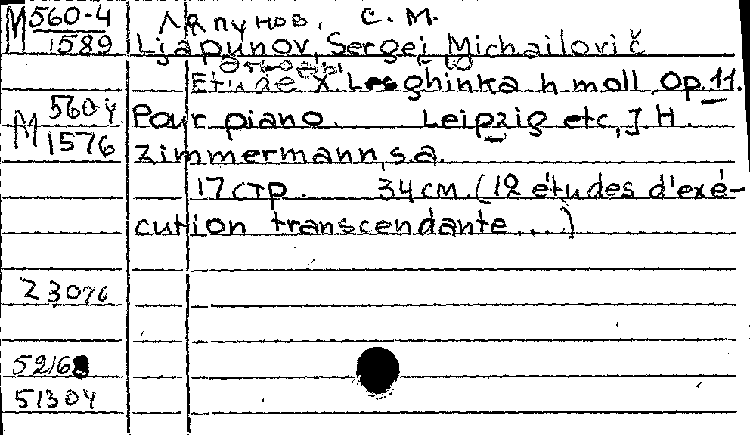 M 560-4 Ляпунов, С. М.
1589 Ljapunov, Sergej Michailovič
Etude X. Lesghinka h moll, Op. 11.
M 560 4 Pour piano. Leipzig etc, J. H.
1576 Zimmermann, s.a.
17 стр. 34 см. (12 études d'exé-
cution transcendante...)
23076
52168
51304